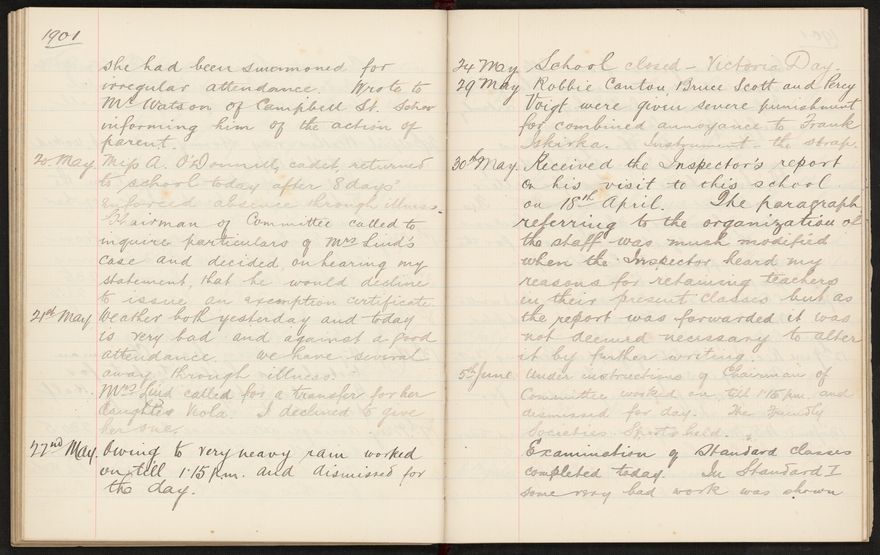 1901
she had been summoned for
irregular attendance. Wrote to
Mr Watson of Campbell St. School
informing him of the action of
parent.
20 May. Miss A. O'Donnell, cadet, returned
to school today after 8 days'
enforced absence through illness.
Chairman of Committee called to
inquire particulars of Mrs Lind's
case and decided, on hearing my
statement, that he would decline
to issue an exemption certificate.
21st May Weather both yesterday and today
is very bad and against a good
attendance. We have several
away through illness.
Mrs Lind called for a transfer for her
daughter Viola. I declined to give
her one.
22nd May. Owing to very heavy rain worked
on till 1.15 p.m. and dismissed for
the day.
24 May School closed - Victoria Day.
29 May Robbie Canton, Bruce Scott and Percy
Voigt were given severe punishment
for combined annoyance to Frank
Iskirka. Instrument - the strap.
30th May. Received the Inspector's report
on his visit to this school
on 18th April. The paragraph
referring to the organization of
the staff was much modified
when the Inspector heard my
reasons for retaining teachers
in their present classes but as
the report was forwarded it was
not deemed necessary to alter
it by further writing.
5th June Under instructions of Chairman of
Committee worked on till 1.15 p.m. and
dismissed for day. The Friendly
Societies Sports held.
Examination of Standard classes
completed today. In Standard I
some very bad work was shown